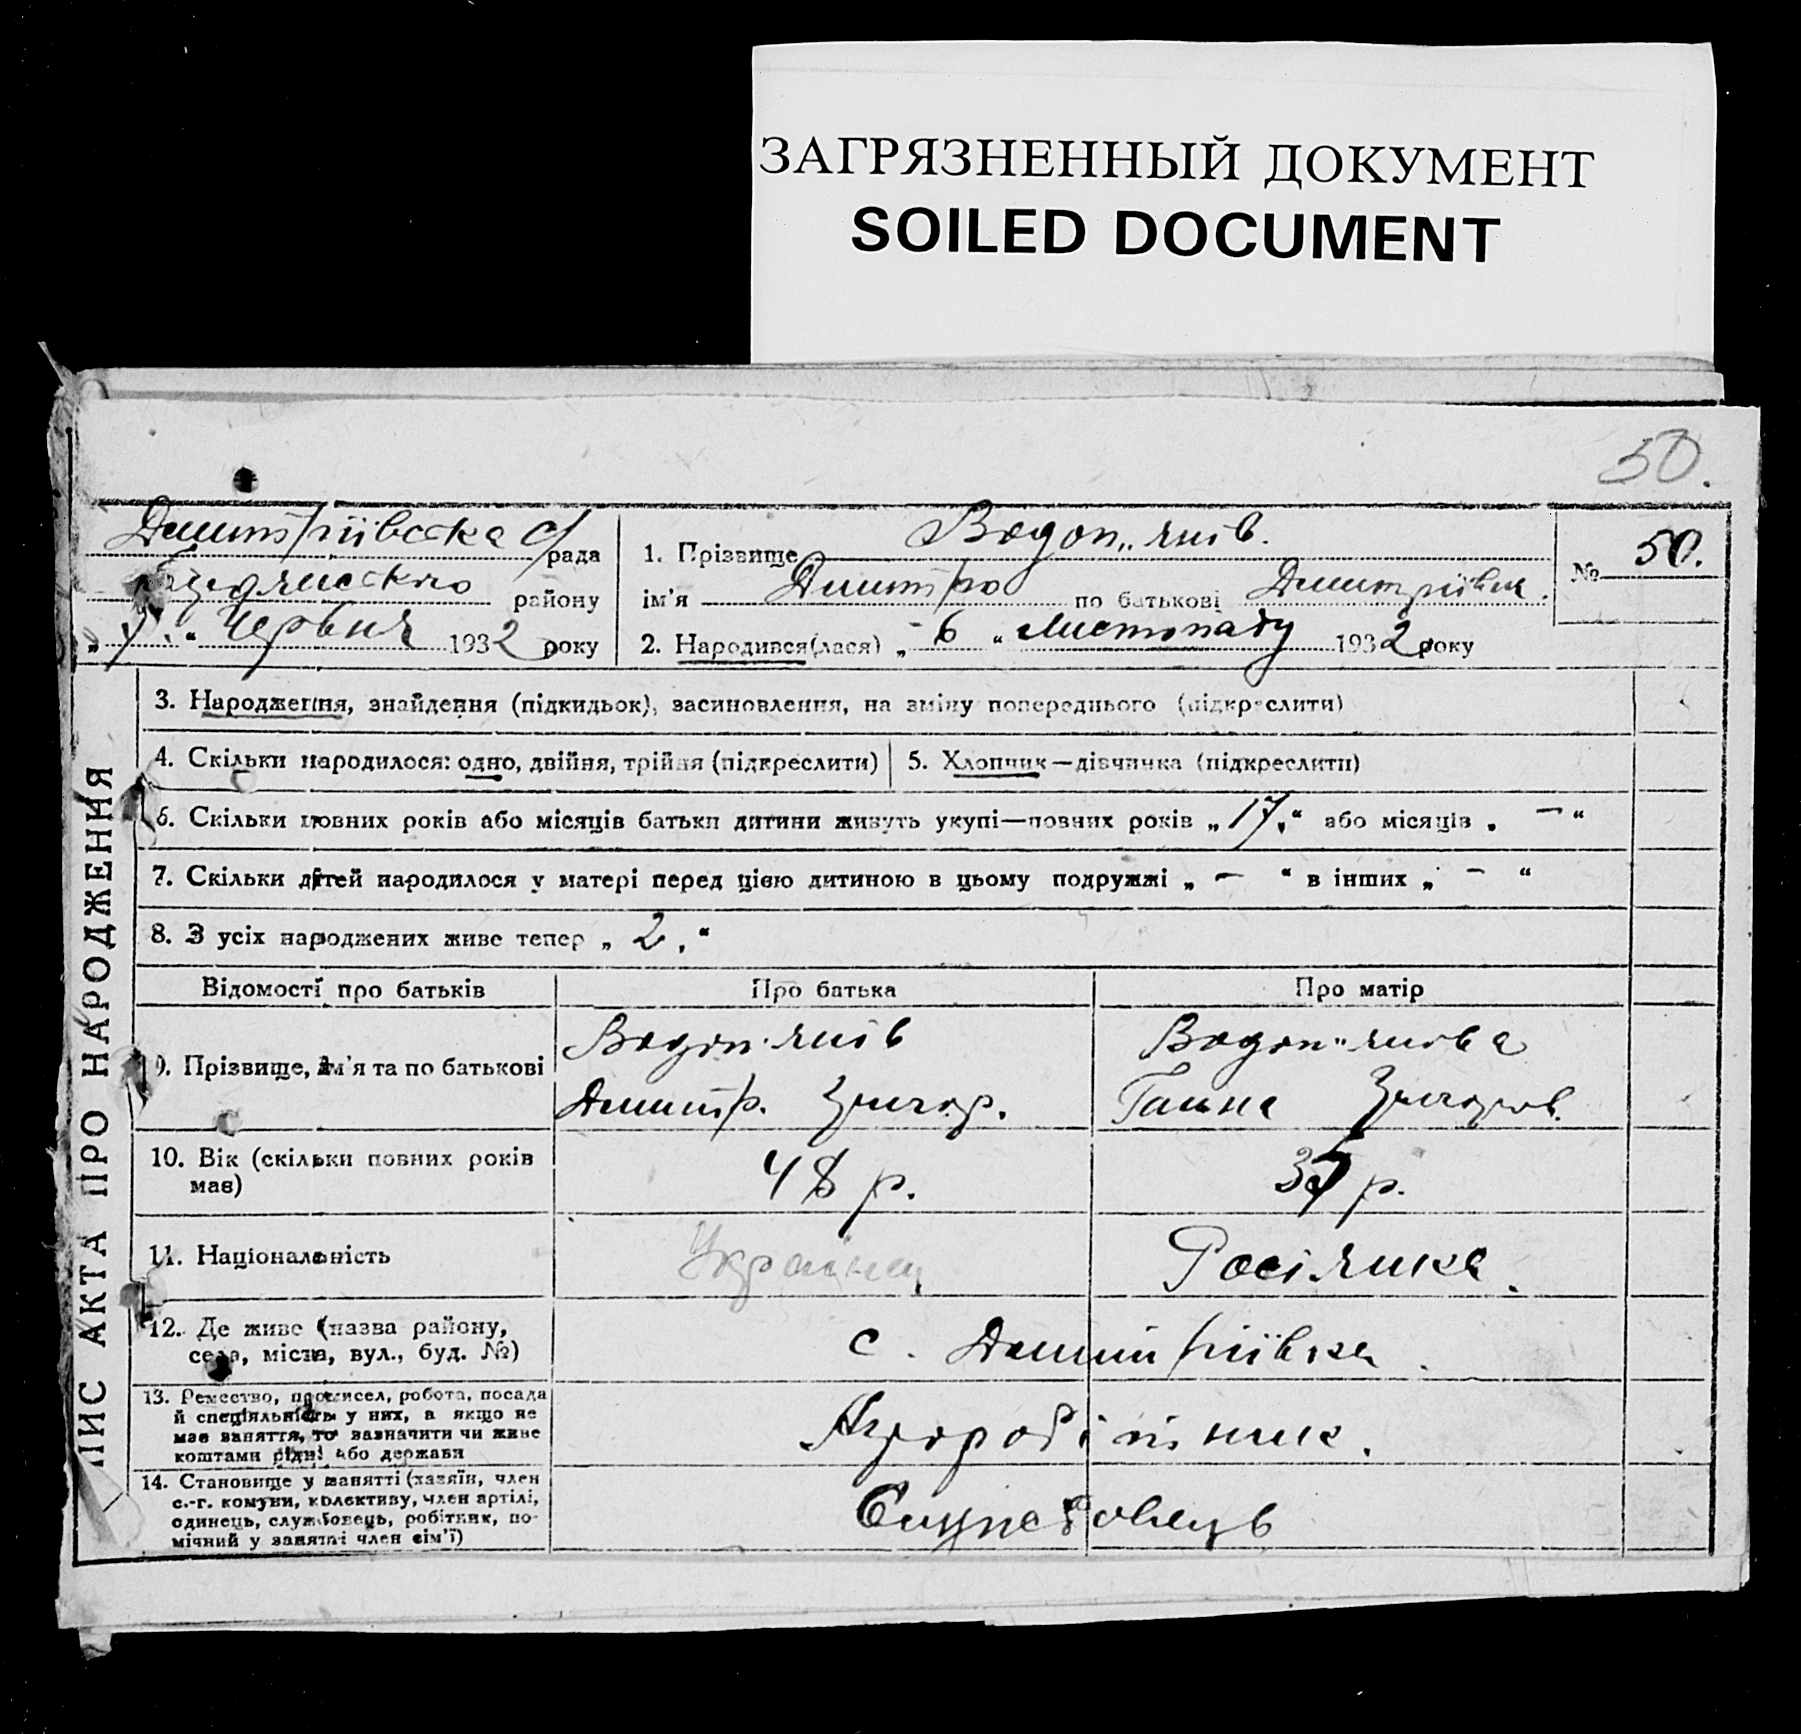 ЗАГРЯЗНЕННЫЙ ДОКУМЕНТ
SOILED DOCUMENT
50.
Дмитріївська с/рада
району
„ 7 “ Червня 1932 року
1. Прізвище Водоп„янів.
ім'я Дмитро по батькові Дмитріївич.
2. Народився(лася) „ 6 “ Листопаду 1932 року
№ 50.
ПИС АКТА ПРО НАРОДЖЕННЯ
3. Народження, знайдення (підкидьок), засиновлення, на зміну попереднього (підкреслити)
4. Скільки народилося: одно, двійня, трійня (підкреслити)
5. Хлопчик—дівчинка (підкреслити)
6. Скільки повних років або місяців батьки дитини живуть укупі—повних років „ 17. “ або місяців „ — “
7. Скільки дітей народилося у матері перед цією дитиною в цьому подружжі „ — “ в інших „ — “
8. З усіх народжених живе тепер „ 2. “
Відомості про батьків Про батька Про матір
9. Прізвище, ім'я та по батькові
Водоп'янів
Дмитр. Григор.
Водоп"янова
Ганна Григоров.
10. Вік (скільки повних років
має)
48 р. 35 р.
11. Національність Українец Росіянка.
12. Де живе (назва району,
села, міста, вул., буд. №)
с. Дмитріївка.
13. Ремество, промисел, робота, посада
й спеціяльність у них, а якщо не
має заняття, то зазначити чи живе
коштами рідні або держави
14. Становище у занятті (хазяїн, член
с.-г. комуни, колективу, член артілі,
одинець, службовець, робітник, по-
мічний у занятті член сім'ї)